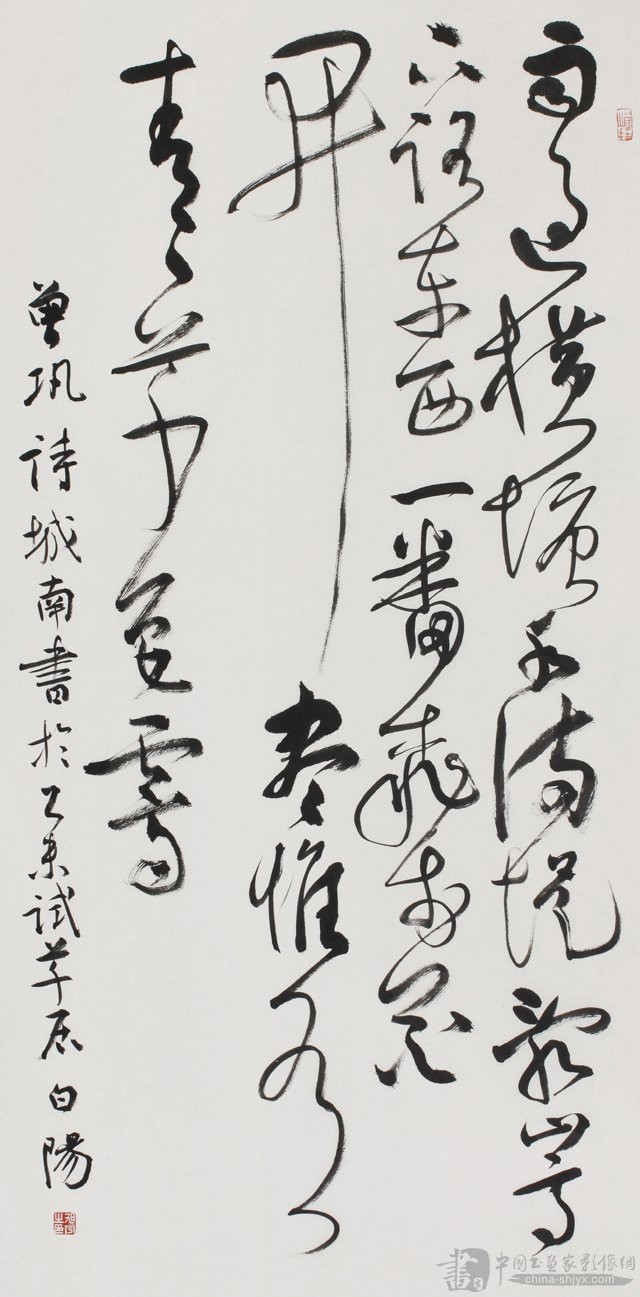 雨過橫塘水滿堤亂山高
下路東西一番桃李花
開盡惟有
青々草色齊
曾巩詩城南書於乙未試草居白陽
書
中國書畫家影像網
china-shjyx.com